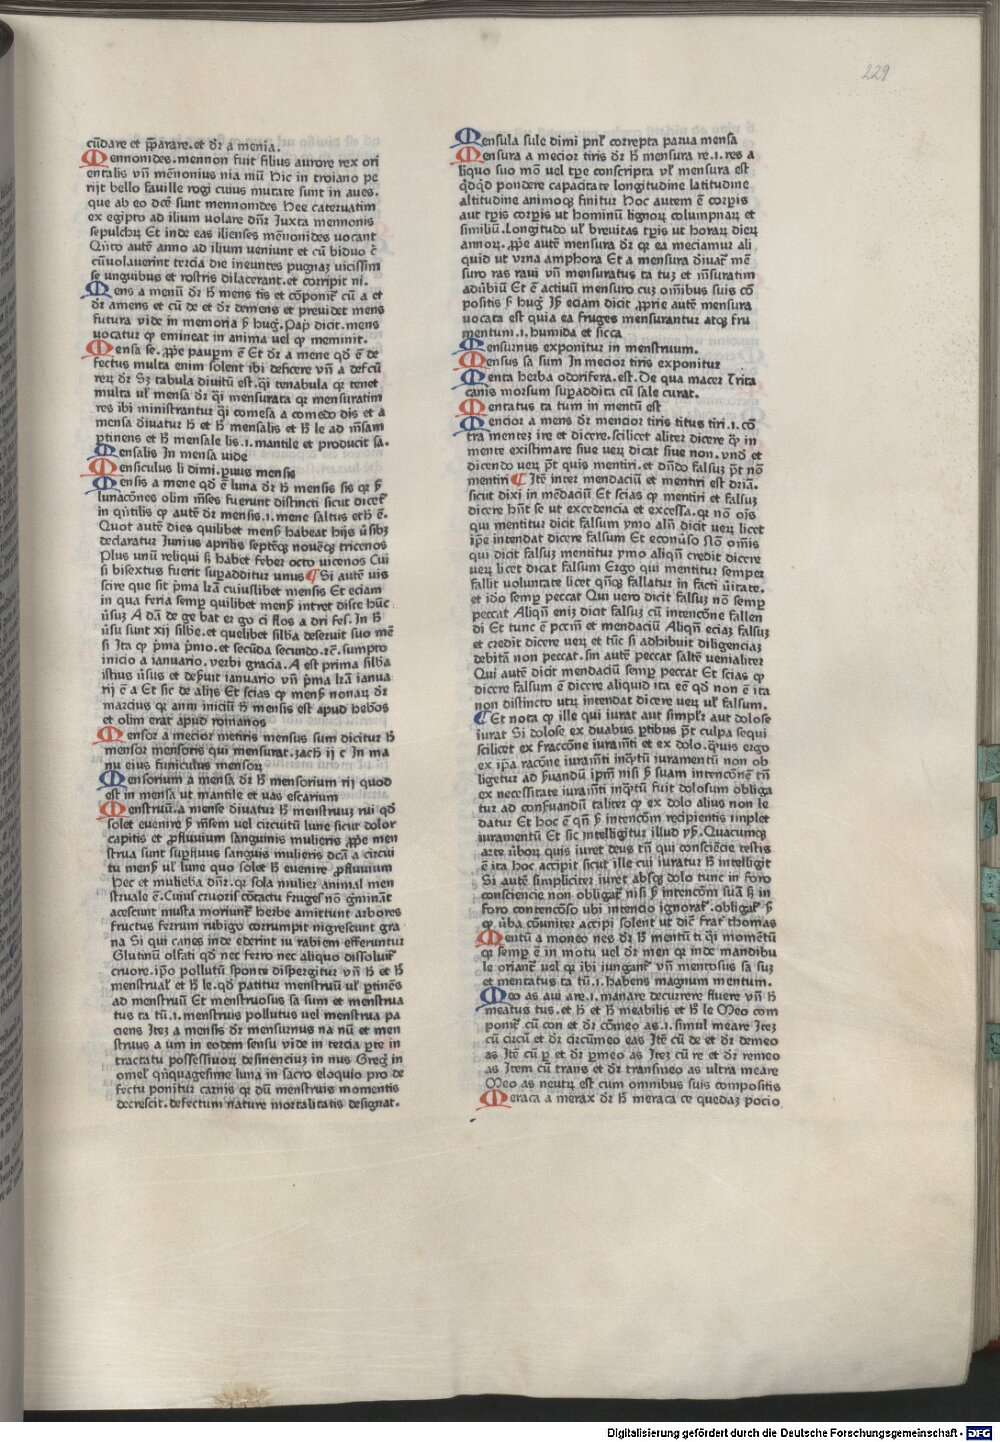 229
cūdare et p̄parare.et dr̄ a menia.
Mennonides.mennon fuit filius aurore rex ori
entalis vn̄ mēnonius nia niū Hic in troiano pe
rijt bello fauille rogi cuius mutate sunt in aues.
que ab eo dc̄e sunt mennonides Hee cateruatim
ex egipto ad ilium uolare dn̄r Juxta mennonis
sepulchrꝝ Et inde eas ilienses mēnonides uocant
Qn̄to autē anno ad ilium ueniunt et cū biduo c̄
cūuolauerint tercia die ineuntes pugnaꝫ uicissim
se unguibus et rostris dilacerant.et corripit ni.
Mens a menū dr̄ h̄ mens tis et cōponit᷑ cū a et
dr̄ amens et cū de et dr̄ demens et preuidet mens
futura vide in memoria ẜ hug᷑. Pap̄ dicit.mens
uocatur ꝙ emineat in anima uel ꝙ meminit.
Mensa se.ꝓp̄e paupm̄ ē Et dr̄ a mene qd̄ ē de
fectus multa enim solent ibi deficere vn̄ a defcū
reꝝ dr̄ Sꝫ tabula diuitū est.q̄i tenabula qꝛ tenet
multa ul᷑ mensa dr̄ q̄i mensurata qꝛ mensuratim
res ibi ministrantur q̄i comesa a comedo dis et a
mensa diuatur h̄ et h̄ mensalis et h̄ le ad m̄sam
ꝑtinens et h̄ mensale lis.i.mantile et producit sa.
Mensalis In mensa uide
Mensiculus li dimi.ꝑuus mensis
Mensis a mene qd̄ ē luna dr̄ h̄ mensis sis qꝛ ẜ
lunacōnes olim m̄ses fuerunt distincti sicut dicet᷑
in qn̄tilis ꝙ autē dr̄ mensis.i.mene saltus eth ē.
Quot autē dies quilibet mens᷑ habeat hijs ūsibꝫ
declaratur Junius aprilis septēqꝫ nouēqꝫ tricenos
Plus unū reliqui ẜ habet feber octo uicenos Cui
si bisextus fuerit suꝑadditur unus ¶ Si autē uis
scire que sit p̄ma lr̄a cuiuslibet mensis Et eciam
in qua feria semꝑ quilibet mens᷑ intret disce hūc
ūsuꝫ A dā de ge bat er go ci fios a dri fes. In h̄
ūsu sunt xij silbe.et quelibet silba deseruit suo mē
si Ita ꝙ p̄ma p̄mo.et secūda secundo.⁊c̄.sumpto
inicio a ianuario.verbi gracia.A est prima silba
istius ūsus et deẜuit ianuario vn̄ p̄ma lr̄a ianua
rij ē a Et sic de alijs Et scias ꝙ mens᷑ nonaꝝ dr̄
marcius qꝛ anni iniciū h̄ mensis est apud hebos
et olim erat apud romanos
Mensor a mecior metiris mensus sum dicitur h̄
mensor mensoris qui mensurat.zach ij c In ma
nu eius funiculus mensoꝝ
Mensorium a mensa dr̄ h̄ mensorium rij quod
est in mensa ut mantile et uas escarium
Menstruū.a mense diuatur h̄ menstruuꝫ rui qd̄
solet euenire ẜ m̄sem uel circuitū lune sicut dolor
capitis et ꝓfluuium sanguinis mulieris ꝓp̄e men
strua sunt suꝑfluus sanguis mulieris dc̄a a circui
tu mens᷑ ul᷑ lune quo solet h̄ euenire ꝓfluuium
Hec et muliebia dn̄r.qꝛ sola mulier animal men
struale ē.Cuius cruoris cōtactu fruges nō ḡmināt
acescunt musta moriunt᷑ herbe amittunt arbores
fructus ferrum rubigo corrumpit nigrescunt gra
na Si qui canes inde ederint iu rabiem efferuntur
Glutinū olfati qd̄ nec ferro nec aliquo dissoluit᷑
cruore.ip̄o pollutū sponte dispergitur vn̄ h̄ et h̄
menstrual᷑ et h̄ le.qd̄ patitur menstruū ul᷑ ꝑtinēs
ad menstruū Et menstruosus sa sum et menstrua
tus ta tū.i.menstruis pollutus uel menstrua pa
ciens Iteꝫ a mensis dr̄ mensurnus na nū et men
struus a um in eodem sensu vide in tercia ꝑte in
tractatu possessiuoꝝ desinenciuꝫ in nus Greg᷑ in
omel᷑ qn̄quagesime luna in sacro eloquio pro de
fectu ponitur carnis qꝛ dū menstruis momentis
decrescit.defectum nature mortalitatis designat.
Mensula sule dimi pnl᷑ correpta parua mensa
Mensura a mecior tiris dr̄ h̄ mensura re.i.res a
liquo suo mō uel tp̄e conscripta ul᷑ mensura est
qd̄qd̄ pondere capacitate longitudine latitudine
altitudine animoqꝫ finitur Hoc autem ē corꝑis
aut tꝑis corꝑis ut hominū lignoꝝ columpnaꝝ et
similiū.Longitudo ul᷑ breuitas tꝑis ut horaꝝ dieꝝ
annoꝝ.ꝓp̄e autē mensura dr̄ qꝛ ea meciamur ali
quid ut vrna amphora Et a mensura diuat᷑ mē
suro ras raui vn̄ mensuratus ta tuꝫ et m̄suratim
adūbiū Et ē actiuū mensuro cuꝫ oīnibus suis cō
positis ẜ hug᷑ Iẜ eciam dicit ꝓprie autē mensura
uocata est quia ea fruges mensurantur atqꝫ fru
mentum.i.humida et sicca
Mensurnus exponitur in menstruum.
Mensus sa sum In mecior tiris exponitur
Menta herba odorifera.est.De qua macer Trita
canis morsum suꝑaddita cū sale curat.
Mentatus ta tum in mentū est
Mencior a mens dr̄ mencior tiris titus tiri.i.cō
tra menteꝫ ire et dicere.scilicet aliter dicere qꝫ in
mente existimare siue ueꝝ dicat siue non.vnd̄ et
dicendo ueꝝ pt̄ quis mentiri.et dn̄do falsuꝫ pt̄ nō
mentiri ¶ Itē inter mendaciū et mentiri est dr̄iā.
sicut dixi in mēdaciū Et scias ꝙ mentiri et falsuꝫ
dicere hn̄t se ut excedencia et excessa.qꝛ nō oīs
qui mentitur dicit falsum ymo alin̄ dicit ueꝝ licet
ip̄e intendat dicere falsum Et econūso n̄o om̄is
qui dicit falsuꝫ mentitur ymo aliqn̄ credit dicere
ueꝝ licet dicat falsum Ergo qui mentitur semper
fallit uoluntate licet qn̄qꝫ fallatur in facti ūitate.
et id̄o semꝑ peccat Qui uero dicit falsuꝫ nō semꝑ
peccat Aliqn̄ eniꝫ dicit falsuꝫ cū intencōne fallen
di Et tunc ē pccm̄ et mendaciū Aliqn̄ eciaꝫ falsuꝫ
et credit dicere ueꝝ et tūc si adhibuit diligenciaꝫ
debitā non peccat.sin autē peccat saltē uenialiter
Qui autē dicit mendaciū semꝑ peccat Et scias ꝙ
dicere falsum ē dicere aliquid ita eē qd̄ non ē ita
non distincto utꝝ intendat dicere ueꝝ ul᷑ falsum.
¶ Et nota ꝙ ille qui iurat aut simpl᷑r aut dolose
iurat Si dolose ex duabus ꝑtibus pt̄ culpa sequi
scilicet ex fraccōne iuram̄ti et ex dolo.qͣuis ergo
ex ip̄a racōne iuram̄ti inqn̄tū iuramentū non ob
ligetur ad ẜuandū ip̄m nisi ẜ suam intencōnē tn̄
ex necessitate iuram̄ti inqn̄tū fuit dolosum obliga
tur ad conẜuandū taliter ꝙ ex dolo alius non le
datur Et hoc ē qn̄ ẜ intencōm recipientis implet
iuramentū Et sic intelligitur illud yẜ.Quacumqꝫ
arte ūboꝝ quis iuret deus tn̄ qui consciēcie testis
ē ita hoc accipit sicut ille cui iuratur h̄ intelligit
Si autē simpliciter iuret absqꝫ dolo tunc in foro
consciencie non obligat᷑ nisi ẜ intencōm suā ẜ in
foro contencōso ubi intencio ignorat᷑.obligat᷑ ẜ
ꝙ ūba cōuniter accipi solent ut dic̄ frat᷑ thomas
Mentū a moneo nes dr̄ h̄ mentū ti q̄i momētū
qꝛ semꝑ ē in motu uel dr̄ men qꝛ inde mandibu
le oriant᷑ uel qꝛ ibi jungant᷑ vn̄ mentosus sa suꝫ
et mentatus ta tū.i.habens magnum mentum.
Meo as aui are.i.manare decurrere fluere vn̄ h̄
meatus tus.et h̄ et h̄ meabilis et h̄ le Meo com
ponit᷑ cū con et dr̄ cōmeo as.i.simul meare Iteꝫ
cū circū et dr̄ circūmeo eas Itē cū de et dr̄ demeo
as Itē cū ꝑ et dr̄ ꝑmeo as Iteꝫ cū re et dr̄ remeo
as Item cū trans et dr̄ transmeo as ultra meare
Meo as neutꝝ est cum omnibus suis compositis
Meraca a merax dr̄ h̄ meraca ce quedaꝫ pocio
Digitalisierung gefördert durch die Deutsche Forschungsgemeinschaft - DFG